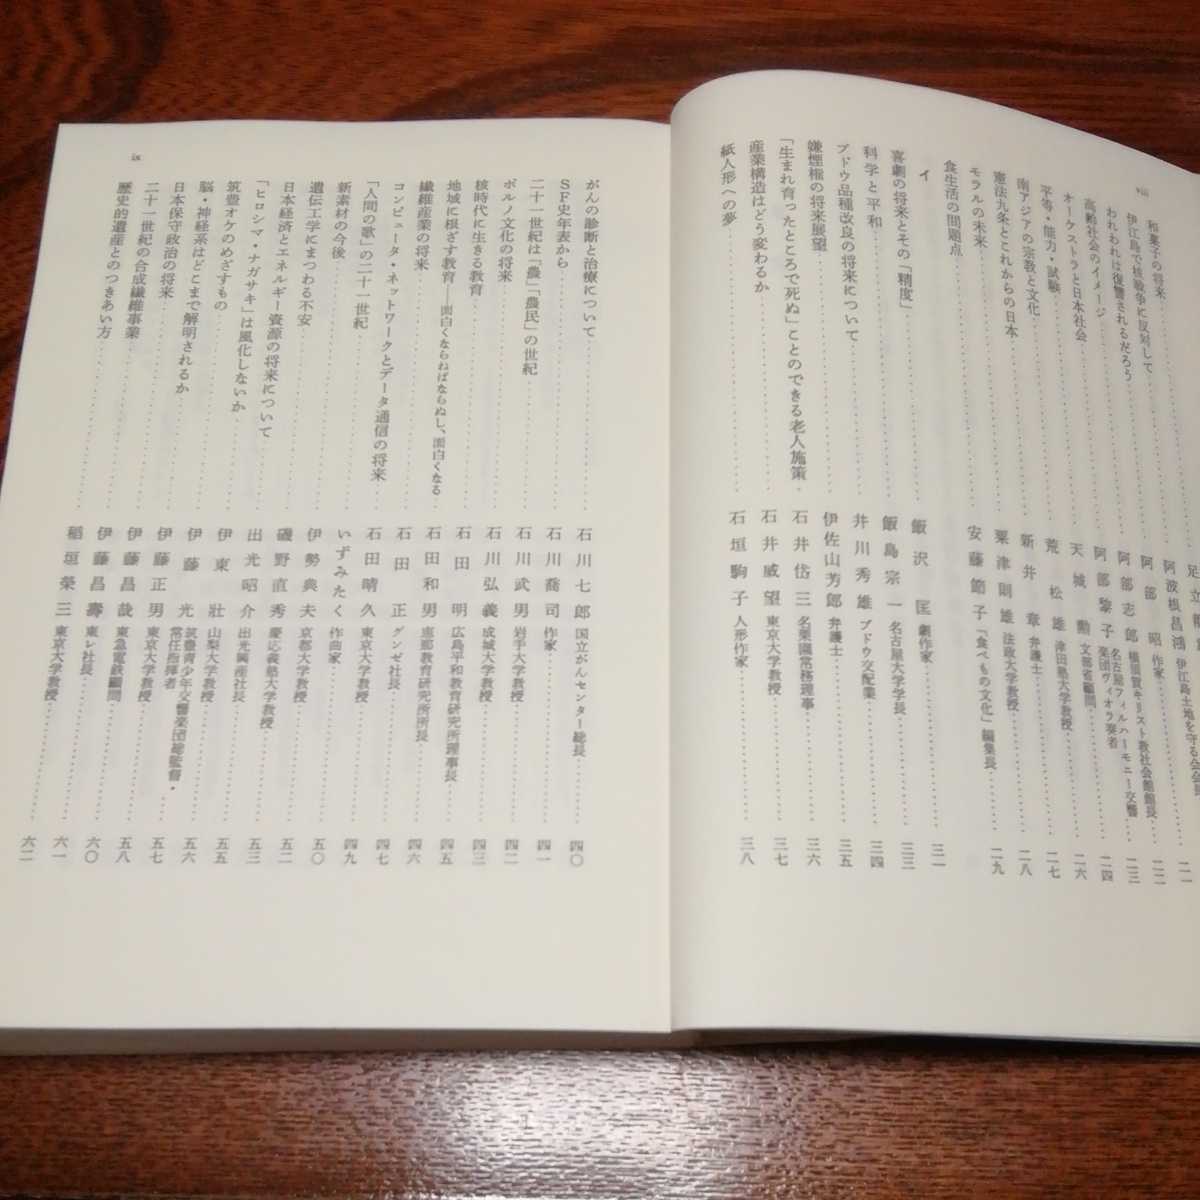 viii
和菓子の将来
伊江島で核戦争に反対して 阿波根昌鴻 伊江島土地を守る会会長
われわれは復讐されるだろう 阿部 昭 作家 二一
高齢社会のイメージ 阿部志郎 横須賀キリスト教社会館館長 二二
オーケストラと日本社会 阿部黎子 名古屋フィルハーモニー交響楽団ヴィオラ奏者 二三
平等・能力・試験 天城 勲 文部省顧問 二四
南アジアの宗教と文化 荒 松雄 津田塾大学教授 二六
憲法九条とこれからの日本 新井 章 弁護士 二七
モラルの未来 粟津則雄 法政大学教授 二八
食生活の問題点 安藤節子 「食べもの文化」編集長 二九
イ
喜劇の将来とその「精度」 飯沢 匡 劇作家 三一
科学と平和 飯島宗一 名古屋大学学長 三三
ブドウ品種改良の将来について 井川秀雄 ブドウ交配業 三四
嫌煙権の将来展望 伊佐山芳郎 弁護士 三五
「生まれ育ったところで死ぬ」ことのできる老人施策 石井岱三 名栗園常務理事 三六
産業構造はどう変わるか 石井威望 東京大学教授 三七
紙人形への夢 石垣駒子 人形作家 三八
ix
がんの診断と治療について 石川七郎 国立がんセンター総長 四〇
SF史年表から 石川喬司 作家 四一
二十一世紀は「農」「農民」の世紀 石川武男 岩手大学教授 四二
ポルノ文化の将来 石川弘義 成城大学教授 四三
核時代に生きる教育 石田 明 広島平和教育研究所理事長 四五
地域に根ざす教育――面白くならねばならぬし、面白くなる 石田和男 恵那教育研究所所長 四六
繊維産業の将来 石田 正 グンゼ社長 四七
コンピュータ・ネットワークとデータ通信の将来 石田晴久 東京大学教授 四九
「人間の歌」の二十一世紀 いずみたく 作曲家 五〇
新素材の今後 伊勢典夫 京都大学教授 五二
遺伝工学にまつわる不安 磯野直秀 慶応義塾大学教授 五三
日本経済とエネルギー資源の将来について 出光昭介 出光興産社長 五五
「ヒロシマ・ナガサキ」は風化しないか 伊東 壯 山梨大学教授 五六
筑豊オケのめざすもの 伊藤 光 筑豊青少年交響楽団総監督・常任指揮者 五七
脳・神経系はどこまで解明されるか 伊藤正男 東京大学教授 五八
日本保守政治の将来 伊藤昌哉 東急電鉄顧問 六〇
二十一世紀の合成繊維事業 伊藤昌壽 東レ社長 六一
歴史的遺産とのつきあい方 稲垣榮三 東京大学教授 六二